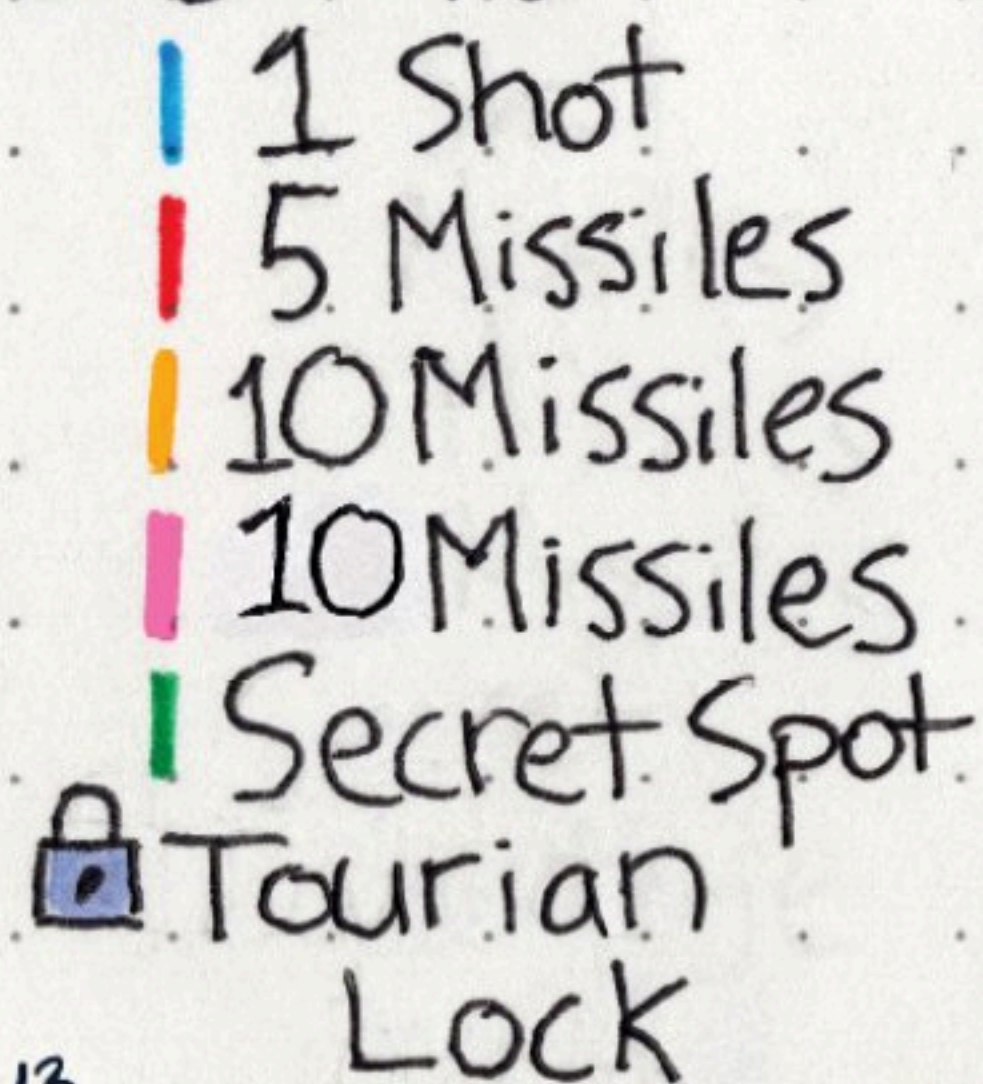 1 Shot
5 Missiles
10 Missiles
10 Missiles
Secret Spot
Tourian
Lock
13